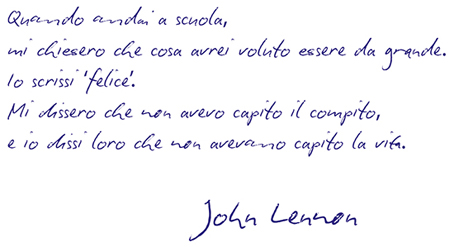 Quando andai a scuola,
mi chiesero che cosa avrei voluto essere da grande.
Io scrissi 'felice'.
Mi dissero che non avevo capito il compito,
e io dissi loro che non avevano capito la vita.
John Lennon